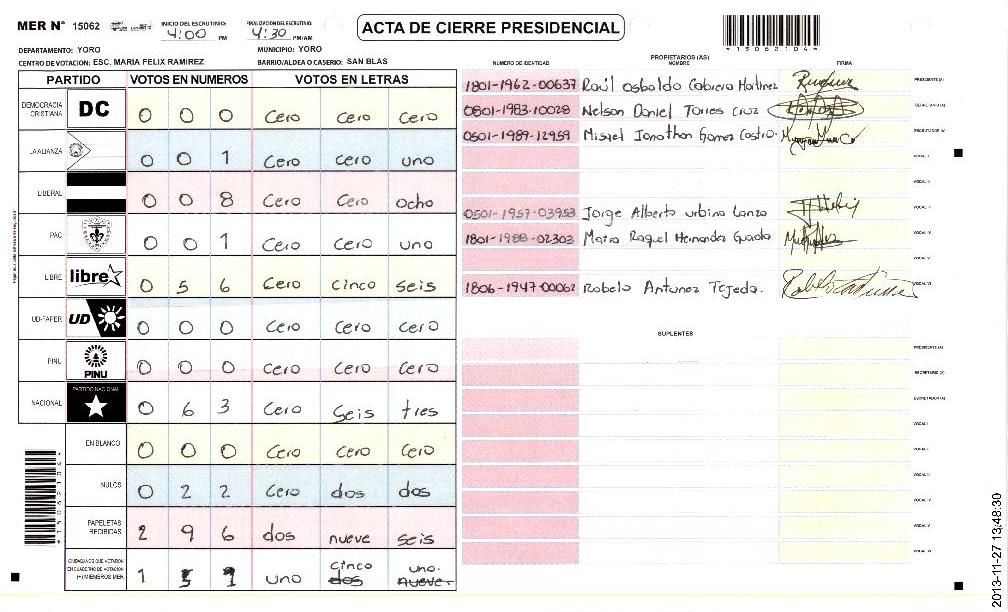 MER N° 15062 INICIO DEL ESCRUTINIO: 4:00 PM FINALIZACION DEL ESCRUTINIO: 4:30 PM/AM ACTA DE CIERRE PRESIDENCIAL
*15062104*
DEPARTAMENTO: YORO MUNICIPIO: YORO
CENTRO DE VOTACION: ESC. MARIA FELIX RAMIREZ BARRIO/ALDEA O CASERIO: SAN BLAS
PARTIDO VOTOS EN NUMEROS VOTOS EN LETRAS
DEMOCRACIA CRISTIANA DC 0 0 0 Cero Cero Cero
LA ALIANZA 0 0 1 Cero Cero uno
LIBERAL 0 0 8 Cero Cero ocho
PAC 0 0 1 Cero Cero uno
LIBRE libre 0 5 6 Cero Cinco Seis
UD-FAPER UD 0 0 0 Cero Cero Cero
PINU PINU 0 0 0 Cero Cero Cero
NACIONAL PARTIDO NACIONAL 0 6 3 Cero Seis tres
EN BLANCO 0 0 0 Cero Cero Cero
NULOS 0 2 2 Cero dos dos
PAPELETAS RECIBIDAS 2 9 6 dos nueve seis
CIUDADANOS QUE VOTARON EN CUADERNO DE VOTACION (+) MIEMBROS MER 1 5 1 uno cinco dos uno. nueve
PROPIETARIOS (AS)
NUMERO DE IDENTIDAD NOMBRE FIRMA
1801-1962-00637 Raúl Osbaldo Cabrera Martinez PRESIDENTE (A)
0801-1983-10028 Nelson Daniel Torres Cruz SECRETARIO (A)
0501-1989-12959 Misael Jonathan Gomez Castro. ESCRUTADOR (A)
VOCAL I
VOCAL II
0501-1957-03953 Jorge Alberto urbina Lanza VOCAL III
1801-1988-02303 Maira Raquel Hernandez VOCAL IV
VOCAL V
1806-1947-00062 Robelo Antunez Tejeda. VOCAL VI
SUPLENTES
PRESIDENTE (A)
SECRETARIO (A)
ESCRUTADOR (A)
VOCAL I
VOCAL II
VOCAL III
VOCAL IV
VOCAL V
VOCAL VI
2013-11-27 13:48:30